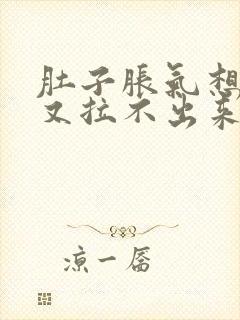 肚子脹氣想
又拉不出來
涼一厬